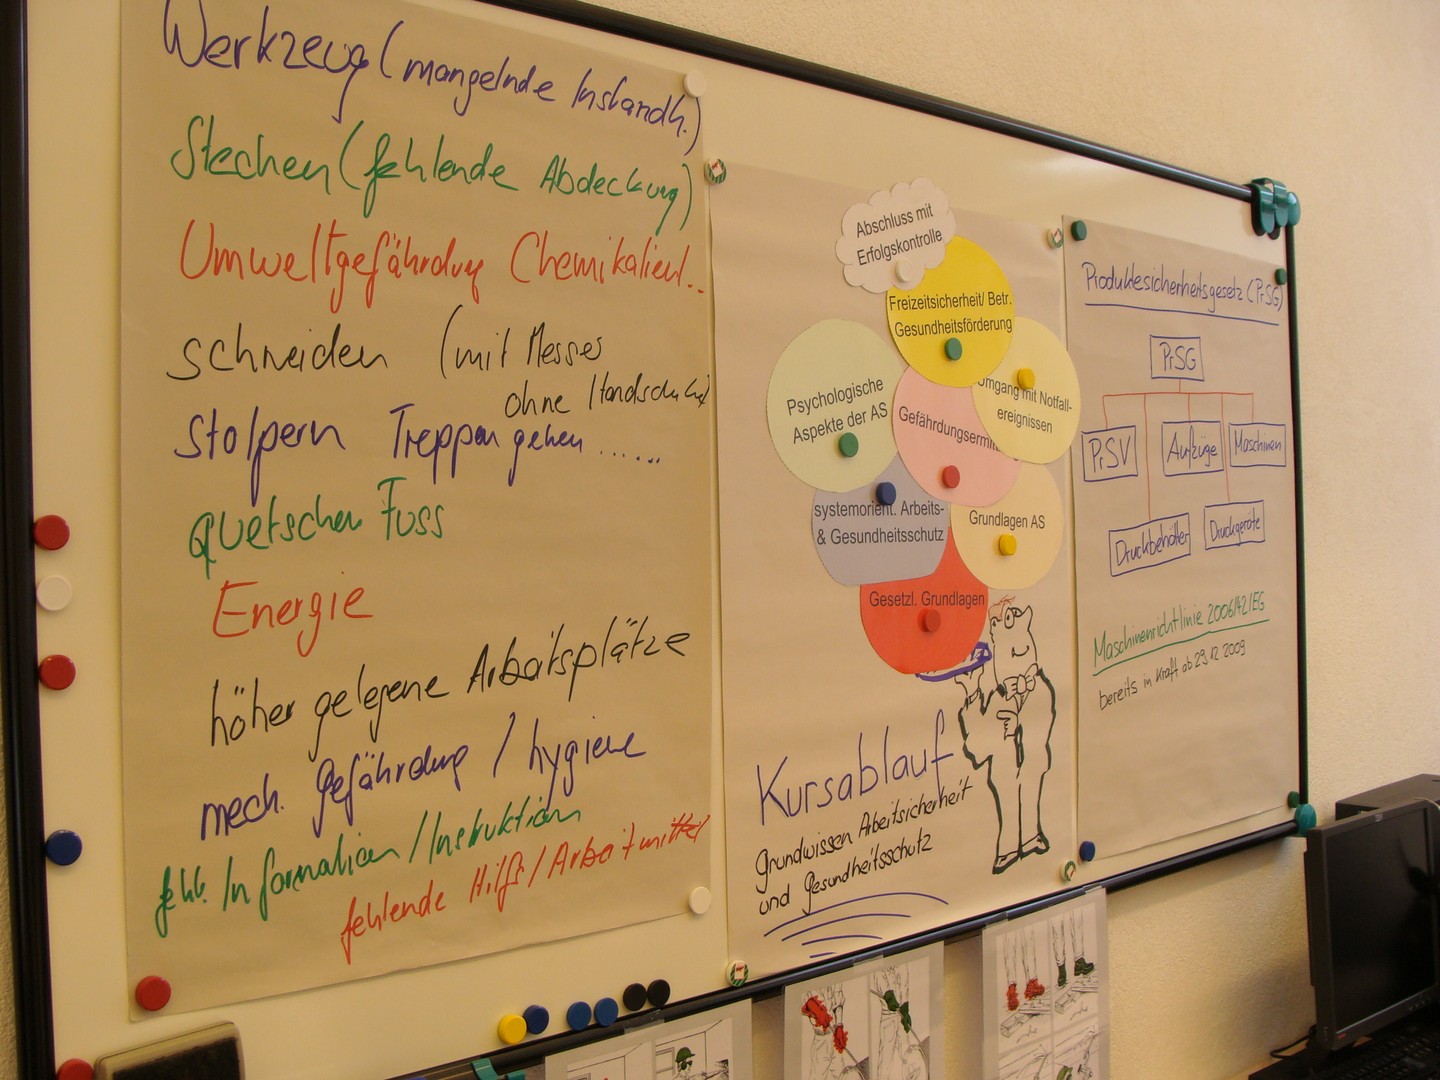 Werkzeug (mangelnde Instandh.)
Stechen (fehlende Abdeckung)
Umweltgefährdung Chemikalien...
schneiden (mit Messer
ohne Handschuhe)
Stolpern Treppen gehen ......
Quetschen Fuss
Energie
höher gelegene Arbeitsplätze
mech. Gefährdung / hygiene
fehl. Information / Instruktion
fehlende Hilfs / Arbeitmittel
Abschluss mit
Erfolgskontrolle
Freizeitsicherheit/ Betr.
Gesundheitsförderung
Psychologische
Aspekte der AS
Umgang mit Notfall-
ereignissen
systemorient. Arbeits-
& Gesundheitsschutz
Grundlagen AS
Gesetzl. Grundlagen
Kursablauf
Grundwissen Arbeitsicherheit
und Gesundheitsschutz
Produktesicherheitsgesetz (PrSG)
PrSG
PrSV
Aufzüge
Maschinen
Druckbehälter
Druckgeräte
Maschinenrichtlinie 2006/42/EG
bereits in Kraft ab 29.12.2009